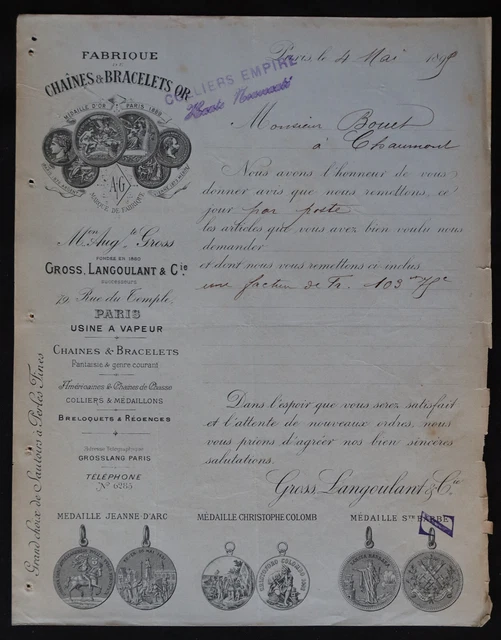 FABRIQUE
DE
CHAÎNES & BRACELETS OR
MÉDAILLE D'OR PARIS 1889
AG
MARQUE DE FABRIQUE
Mon Augte Gross
FONDÉE EN 1860
GROSS, LANGOULANT & Cie
SUCCESSEURS
79, Rue du Temple,
PARIS
USINE A VAPEUR
CHAINES & BRACELETS
Fantaisie & genre courant
Américaines & Chaînes de Chasse
COLLIERS & MÉDAILLONS
BRELOQUETS & RÉGENCES
Adresse Télégraphique
GROSSLANG PARIS
TÉLÉPHONE
No 6285
Grand choix de Sautoirs à Perles Fines
COLLIERS EMPIRE
Haute Nouveauté
Paris, le 4 Mai 1895
Monsieur Bouet
à Chaumont
Nous avons l'honneur de vous
donner avis que nous remettons, ce
jour par poste
les articles que vous avez bien voulu nous
demander
et dont nous vous remettons ci inclus,
une facture de Fr. 103
Dans l'espoir que vous serez satisfait
et l'attente de nouveaux ordres, nous
vous prions d'agréer nos bien sincères
salutations.
Gross, Langoulant & Cie
MÉDAILLE JEANNE-D'ARC
MÉDAILLE CHRISTOPHE COLOMB
MÉDAILLE Ste BARBE
Z